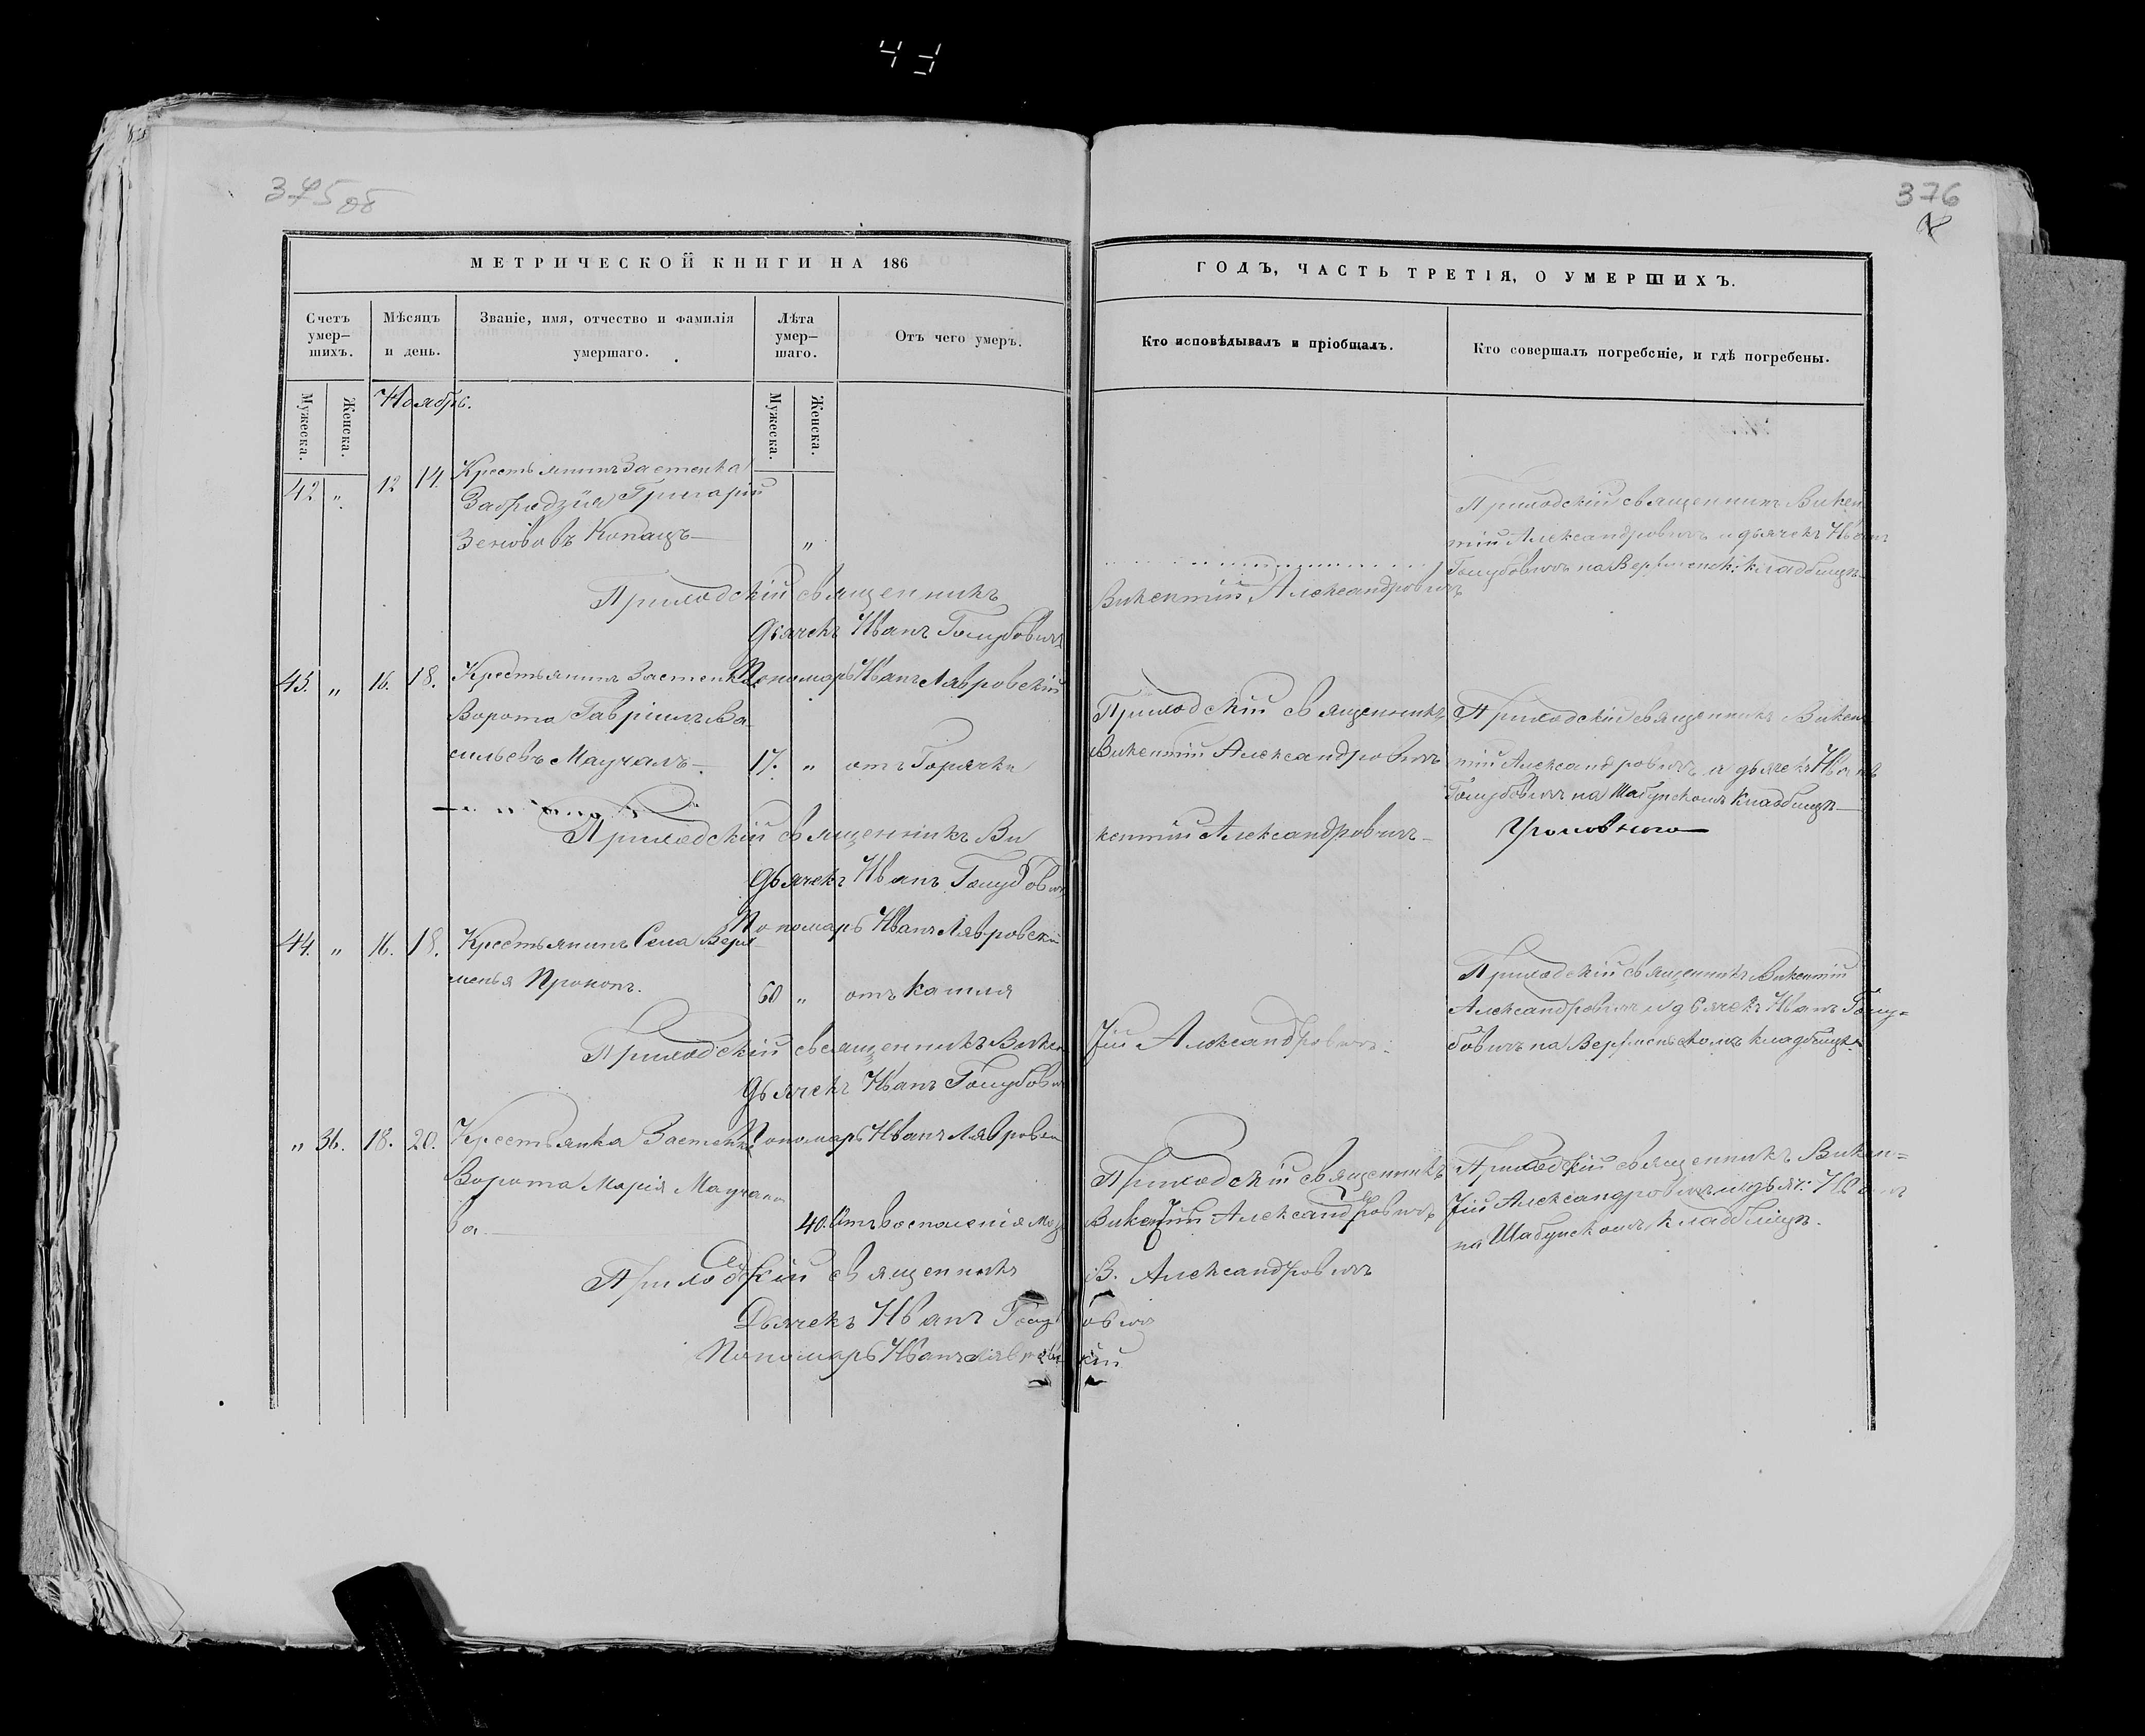 43
375 об
376
МЕТРИЧЕСКОЙ КНИГИ НА 186
ГОДЪ, ЧАСТЬ ТРЕТІЯ, О УМЕРШИХЪ.
Счетъ умер-шихъ.
Мѣсяцъ и день.
Званіе, имя, отчество и фамилія умершаго.
Лѣта умер-шаго.
Отъ чего умеръ.
Кто исповѣдывалъ и пріобщалъ.
Кто совершалъ погребеніе, и гдѣ погребены.
Мужеска.
Женска.
Ноябрь.
Мужеска.
Женска.
42 " 12 14. Крестьянинъ Застенка
Григорій
Копацъ "
Приходскій священникъ Викен
тій Александровичъ и дьячекъ Иванъ
Голубовичъ на кладбищѣ
Приходскій священникъ
Викентій Александровичъ
Дьячекъ Иванъ Голубовичъ
Пономарь Иванъ Лавровскій
43. " 16. 18. Крестьянинъ Застенка
Ворота Гавріилъ Ва
сильевъ Маучалъ 17. " отъ Горячки
Приходскій священникъ
Викентій Александровичъ
Приходскій священникъ Викен
тій Александровичъ и дьячекъ Иванъ
Голубовичъ на Шабунскомъ Кладбищѣ
Приходскій священникъ Ви
кентій Александровичъ
Дьячекъ Иванъ Голубовичъ
Пономарь Иванъ Лавровскій
44. " 16. 18. Крестьянинъ Села Вер
менья Прокопъ. 60 " отъ кашля
Приходскій священникъ Викентій
Александровичъ и дьячекъ Иванъ Голу=
бовичъ на Верменьскомъ кладбищѣ.
Приходскій священникъ Викен
тій Александровичъ.
Дьячекъ Иванъ Голубович
Пономарь Иванъ Лавровск
" 36. 18. 20. Крестьянка Застенка
Ворота Марія Маучало
ва 40. Отъ воспаленія
Приходскій священникъ
Викентій Александровичъ
Приходскій священникъ Викен=
тій Александровичъ и дьяч: Иванъ
на Шабунскомъ кладбищѣ.
Приходскій священникъ
В. Александровичъ
Дьячекъ Иванъ Голубовичъ
Пономарь Иванъ Лавровскій